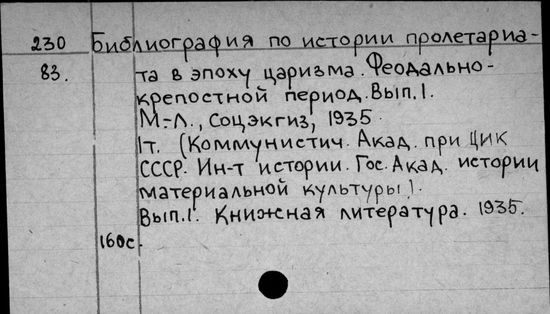 230 Библиография по истории пролетариа-
83. та в эпоху царизма. Феодально-
крепостной период. Вып. 1.
М.-Л., Соцэкгиз, 1935
1т. (Коммунистич. Акад. при ЦИК
СССР. Ин-т истории. Гос. Акад. истории
материальной культуры).
Вып. 1. Книжная литература. 1935.
160с.